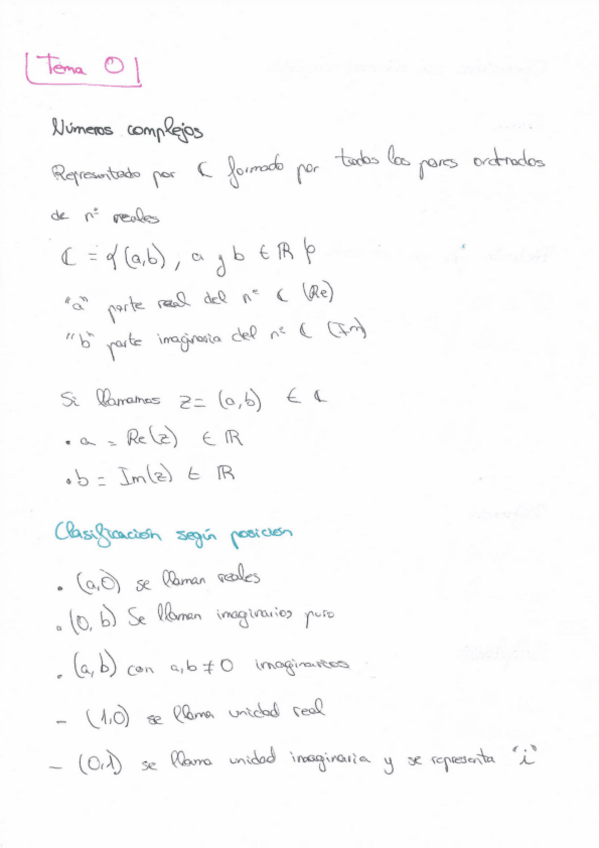 Tema 0
Números complejos
Representado por ℂ formado por todos los pares ordenados
de nº reales
ℂ = {(a,b), a y b ∈ ℝ}
"a" parte real del nº ℂ (Re)
"b" parte imaginaria del nº ℂ (Im)
Si llamamos z = (a,b) ∈ ℂ
• a = Re(z) ∈ ℝ
• b = Im(z) ∈ ℝ
Clasificación según posición
• (a,0) se llaman reales
• (0,b) Se llaman imaginarios puro
• (a,b) con a,b ≠ 0 imaginarios
- (1,0) se llama unidad real
- (0,1) se llama unidad imaginaria y se representa "i"